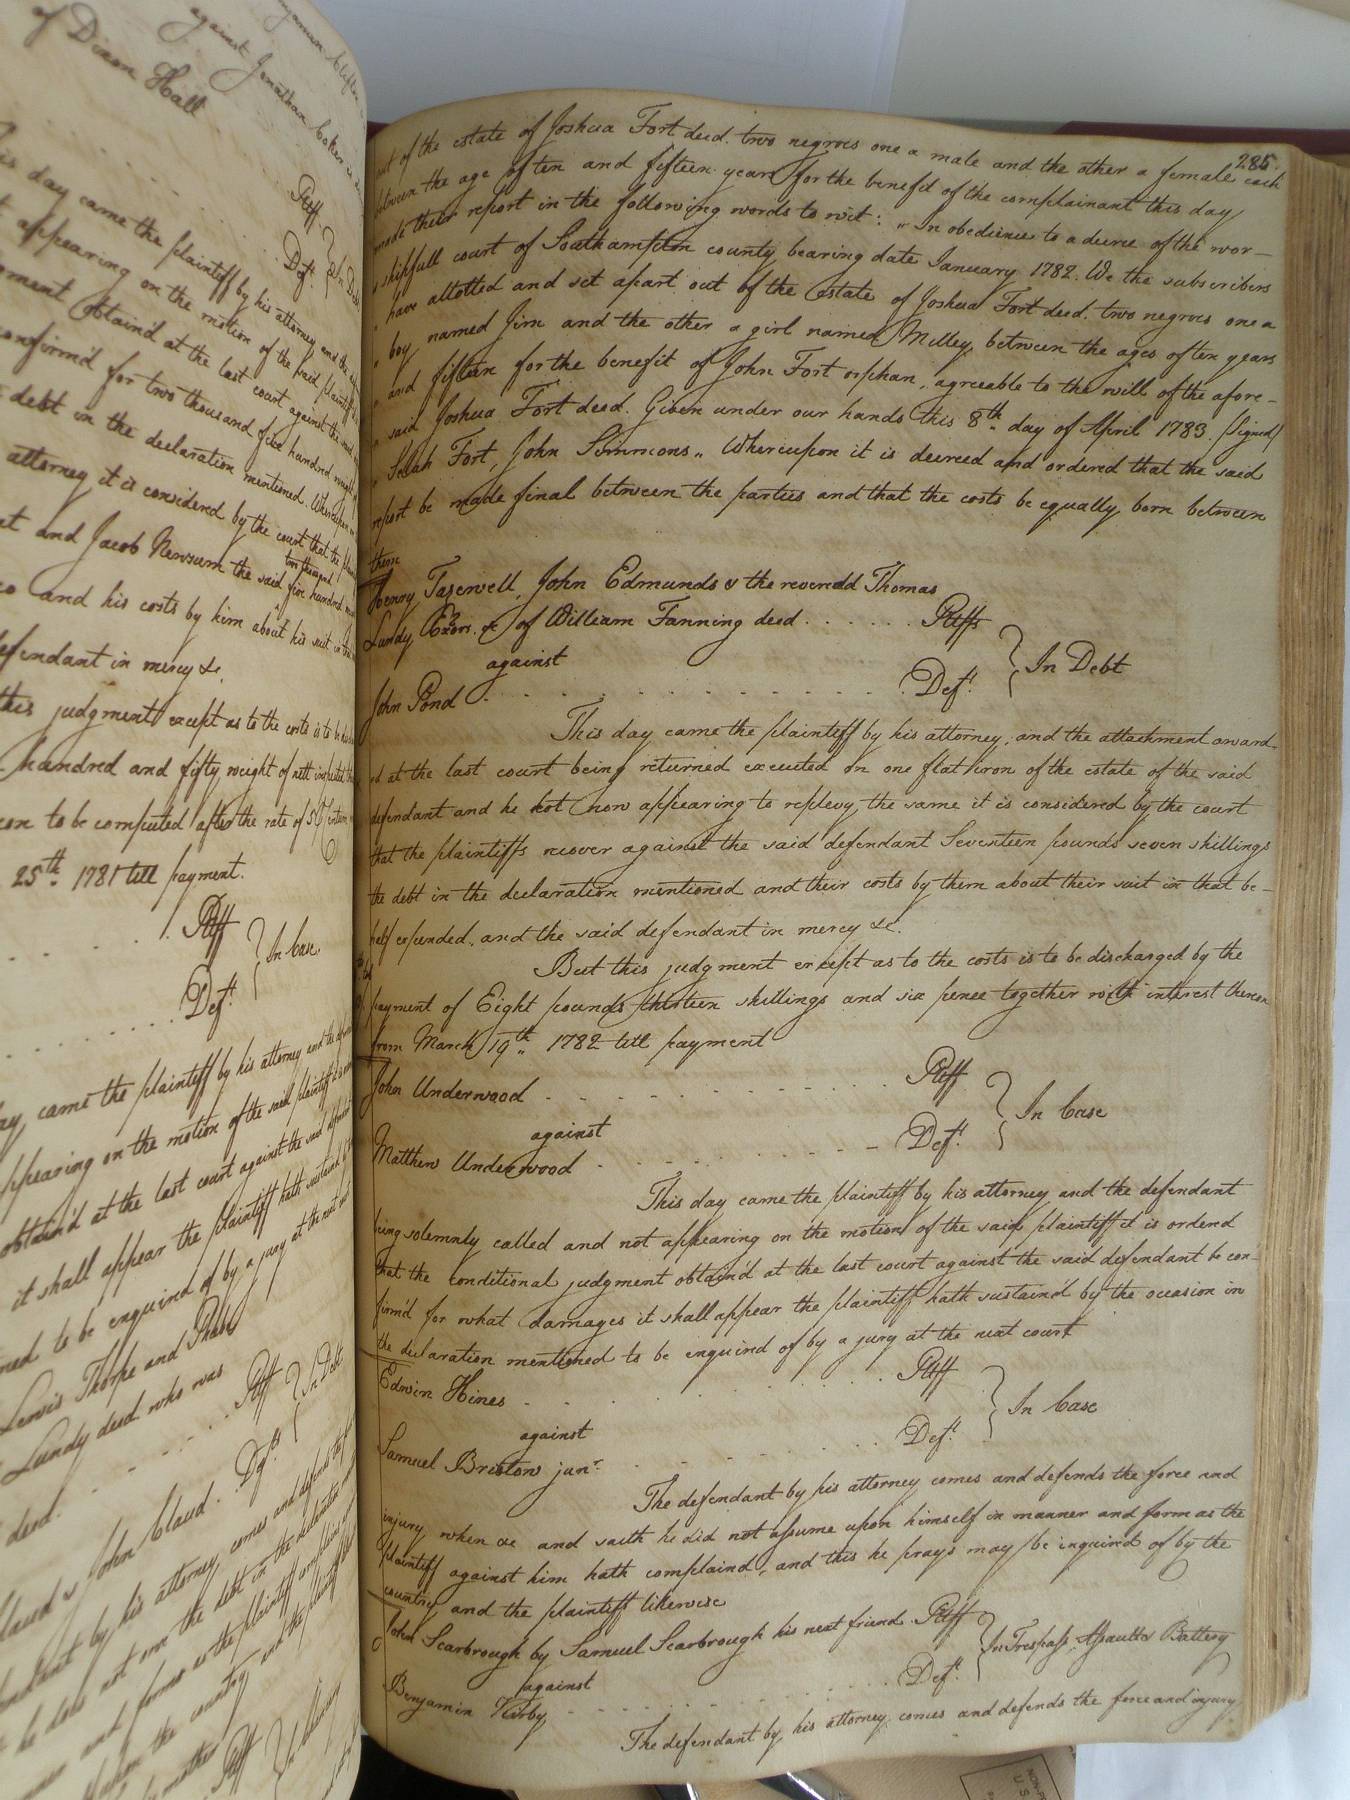 of Dixon Hall
against Jonathan
Pltff
Deft.
In Debt
day came the plaintiff by his attorney and the
appearing on the motion of the said plaintiff
obtain'd at the last court against the said
confirmed for two thousand five hundred
debt in the declaration mentioned. Whereupon
attorney it is considered by the court that the
and Jacob Newsum the said five hundred
two thousand
and his costs by him about his suit in
defendant in mercy &c.
this judgment except as to the costs is to be
hundred and fifty weight of
to be computed after the rate of 5
25th. 1781 till payment.
Plff
In Case
Deft.
came the plaintiff by his attorney and the
appearing on the motion of the said plaintiff
obtain'd at the last court against the said
it shall appear the plaintiff hath sustained
to be enquired of by a jury at the next
Lewis Thorpe and
Lundy deed who was
Plff
In Debt
deed.
Defts
& John Claud
by his attorney comes and defends the
he does not owe the debt in the declaration
and form as the plaintiff
the country and the plaintiff
Plff
285
out of the estate of Joshua Fort deed. two negroes one a male and the other a female each
between the age of ten and fifteen years for the benefit of the complainant this day
made their report in the following words to wit: "In obedience to a decree of the wor-
" shipfull court of Southampton county bearing date January 1782. We the subscribers
" have allotted and set apart out of the estate of Joshua Fort deed. two negroes one a
" boy named Jim and the other a girl named Milley, between the ages of ten years
" and fifteen for the benefit of John Fort orphan, agreeable to the will of the afore-
" said Joshua Fort deed. Given under our hands this 8th. day of April 1783. (Signed)
" Selah Fort, John Simmons" Whereupon it is decreed and ordered that the said
report be made final between the parties and that the costs be equally born between
them
Henry Tazewell, John Edmunds & the reverdd Thomas
Lundy Exors. &c of William Fanning deed. . . . . . . Pltffs
against
In Debt
John Pond . . . . . . . . . . . . Deft.
This day came the plaintiff by his attorney, and the attachment award-
ed at the last court being returned executed on one flat iron of the estate of the said
defendant and he not now appearing to replevy the same it is considered by the court
that the plaintiffs recover against the said defendant Seventeen pounds seven shillings
the debt in the declaration mentioned and their costs by them about their suit in that be-
half expended, and the said defendant in mercy &c.
But this judgment except as to the costs is to be discharged by the
payment of Eight pounds thirteen shillings and six pence together with interest thereon
from March 19th. 1782 till payment
John Underwood . . . . . . . . . . Pltff
against
In Case
Matthew Underwood . . . . . . . . . . Deft.
This day came the plaintiff by his attorney and the defendant
being solemnly called and not appearing on the motion of the said plaintiff it is ordered
that the conditional judgment obtain'd at the last court against the said defendant be con-
firm'd for what damages it shall appear the plaintiff hath sustain'd by the occasion in
the declaration mentioned to be enquired of by a jury at the next court
Edwin Hines . . . . . . . . . . Pltff
against
In Case
Samuel Briston junr. . . . . . . . . . Deft.
The defendant by his attorney comes and defends the force and
injury when &c and saith he did not assume upon himself in manner and form as the
plaintiff against him hath complaind, and this he prays may be inquired of by the
country and the plaintiff likewise
John Scarbrough by Samuel Scarbrough his next friend. Pltff
against
In Trespass, Assault & Battery
Benjamin Kirby . . . . . . . . . . Deft.
The defendant by his attorney comes and defends the force and injury